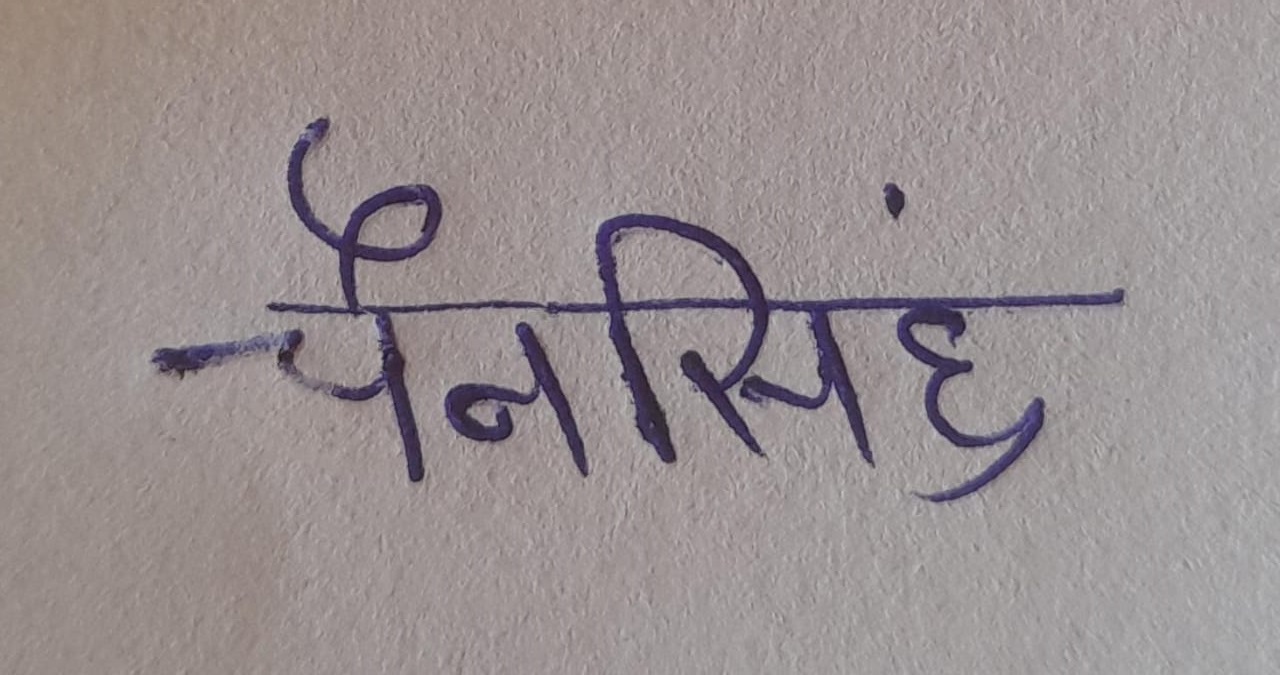 चैनसिंह